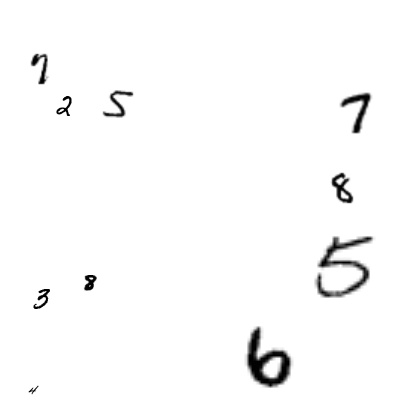 7
2 5
7
8
5
8
3
6
4